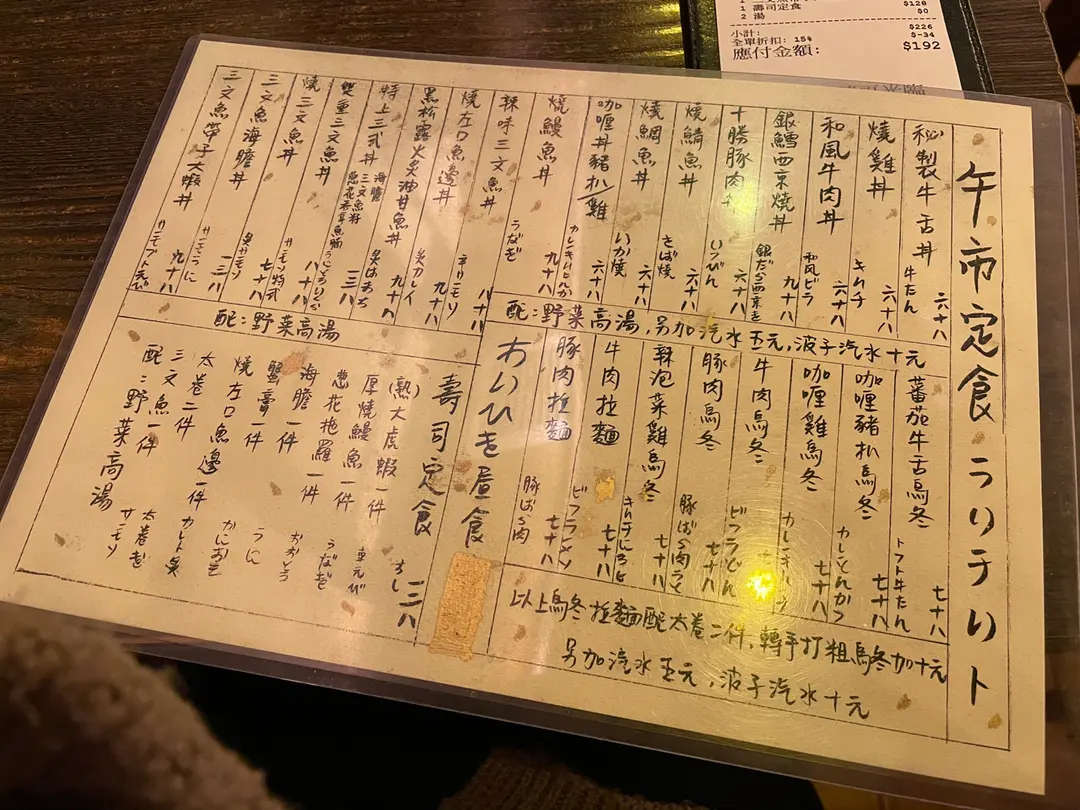 1 壽司定食 $128
2 湯 $0
小計: $226
全單折扣: 15% $-34
應付金額: $192
午市定食
秘製牛舌丼 牛たん 六十八
燒雞丼 キムチ 六十八
和風牛肉丼 和風ビラ 六十八
銀鱈西京燒丼 銀だら西京き 九十八
十勝豚肉丼 六十八
燒鯖魚丼 さば燒 六十八
燒鯛魚丼 いか燒 六十八
咖喱丼豬扒/雞 六十八
燒鰻魚丼 うなぎ 九十八
辣味三文魚丼 辛サーモソ 八十八
燒左口魚邊丼 炙カレイ 九十八
黑松露火炎油甘魚丼 炙はまち 九十八
特上三式丼 海膽 三文魚籽 蔥花吞拿魚腩 一三八
雙重三文魚丼 八十八
燒三文魚丼 炙サモソ 七十八
三文魚海膽丼 サーモうに 一三八
三文魚帶子大蝦丼 九十八
配:野菜高湯,另加汽水五元,波子汽水十元
配:野菜高湯
蕃茄牛舌烏冬 トフト牛たん 七十八
咖喱豬扒烏冬 カレとんかつ 七十八
咖喱雞烏冬 七十八
牛肉烏冬 ビフうどん
豚肉烏冬 豚ばら肉 七十八
辣泡菜雞烏冬 七十八
牛肉拉麵 七十八
豚肉拉麵 豚ばら肉 七十八
以上烏冬拉麵配太卷二件,轉手打粗烏冬加十元
另加汽水五元,波子汽水十元
晝食
壽司定食 すし 一二八
(熟)大虎蝦一件 えび
厚燒鰻魚一件 うなぎ
蔥花拖羅一件
海膽一件 うに
蟹膏一件 かにみそ
燒左口魚邊一件 カレト炙
太卷二件 太卷き
三文魚一件 サーモソ
配:野菜高湯